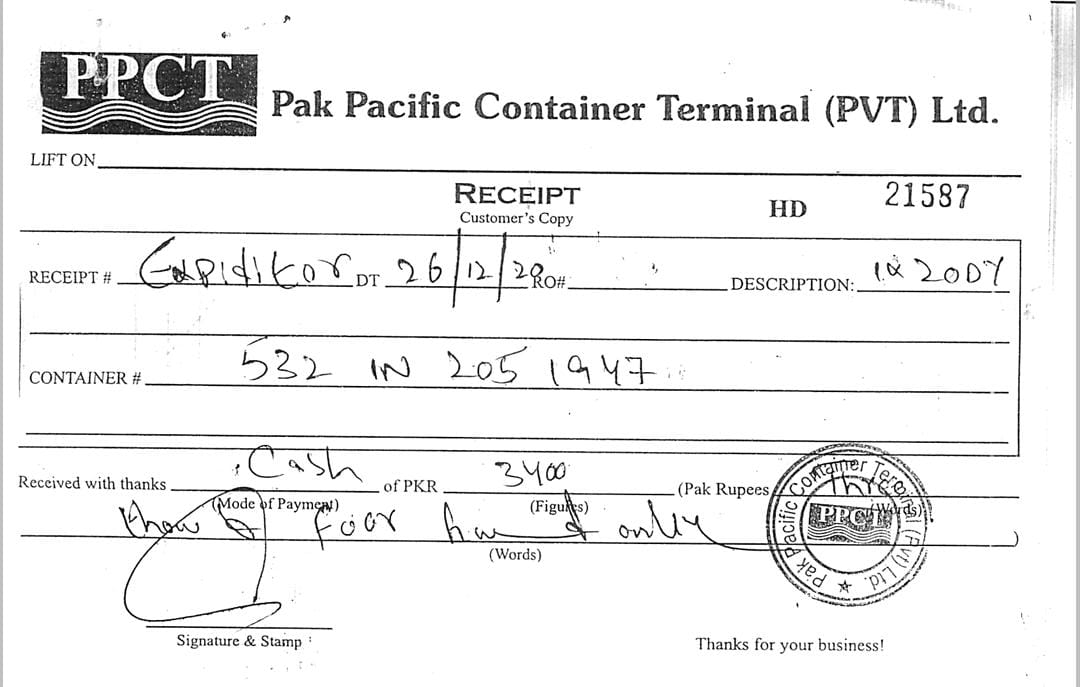 PPCT
Pak Pacific Container Terminal (PVT) Ltd.
LIFT ON
RECEIPT HD 21587
Customer's Copy
RECEIPT # Expiditor DT 26/12/20 RO# DESCRIPTION: 1x20DY
CONTAINER # 532 IN 205 1947
Received with thanks Cash of PKR 3400 (Pak Rupees Three
(Mode of Payment) (Figures) (Words)
four only )
(Words)
Pak Pacific Container Terminal (Pvt) Ltd.
PPCT
Signature & Stamp
Thanks for your business!